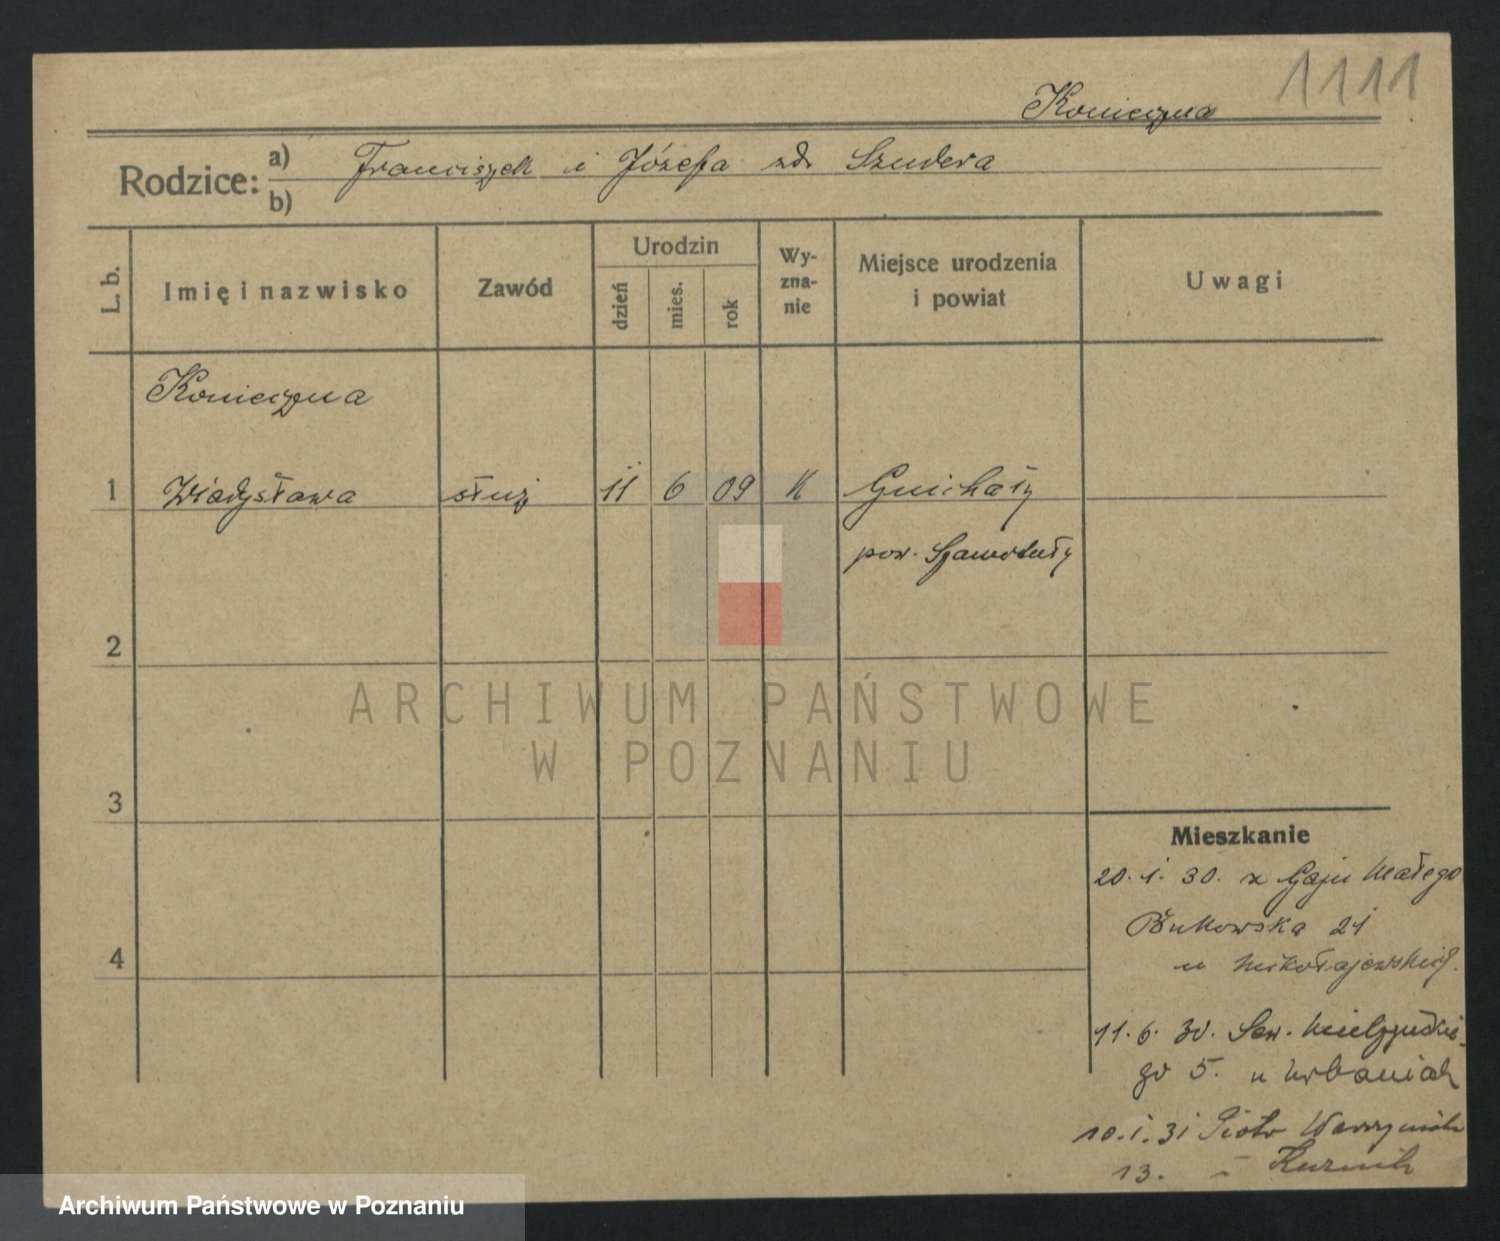 1111
Konieczna
Rodzice: a) Franciszek i Józefa zdr Szudera
b)
L. b.
Imię i nazwisko
Zawód
Urodzin
dzień
mies.
rok
Wy-
zna-
nie
Miejsce urodzenia
i powiat
Uwagi
Konieczna
1 Władysława służ 11 6 09 K
pow. Szamotuły
2
3
4
ARCHIWUM PAŃSTWOWE
W POZNANIU
Mieszkanie
20. 1. 30. z Gaju Małego
Bukowska 21
u Mikołajewskiej.
11. 6. 30. Sew. Mielżyńskie-
go 5. u Urbaniak
10. 1. 31 Piotr Wawrzyniak
13. -
Archiwum Państwowe w Poznaniu